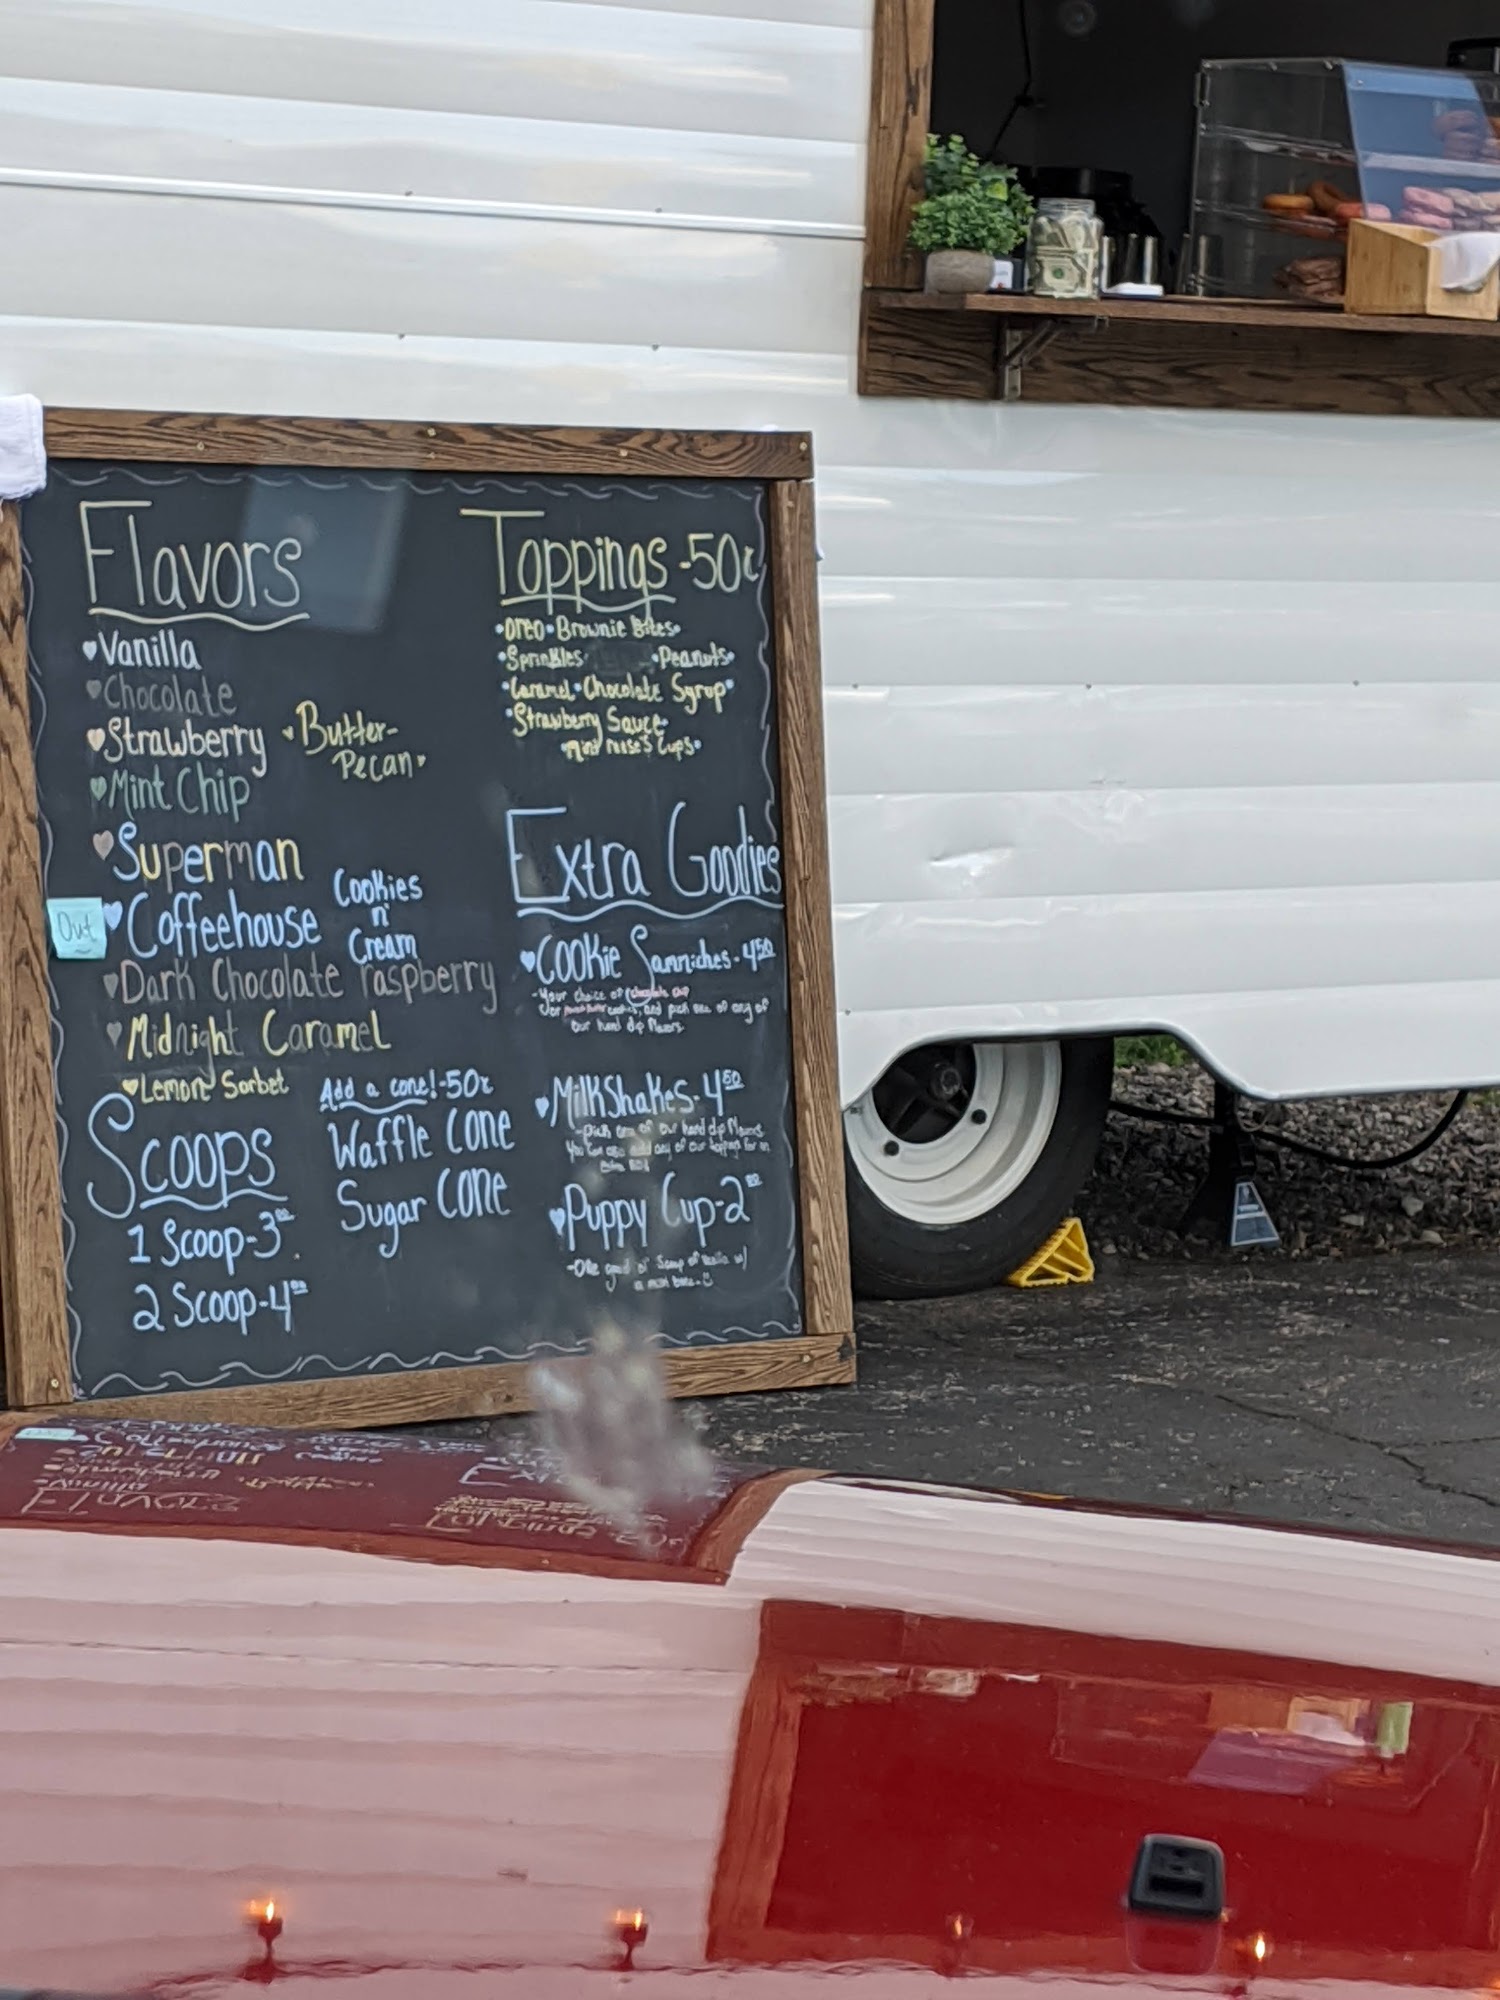 Flavors
Vanilla
Chocolate
Strawberry
Butter-
Pecan
Mint Chip
Superman
Out
Coffeehouse
Cookies
n'
Cream
Dark Chocolate raspberry
Midnight Caramel
Lemon Sorbet
Scoops
1 Scoop-3⁰⁰
2 Scoop-4⁰⁰
Add a cone!-50¢
Waffle Cone
Sugar Cone
Toppings-50¢
•Oreo•Brownie Bites•
•Sprinkles •Peanuts•
•Caramel•Chocolate Syrup•
•Strawberry Sauce•
•Mini Cups•
Extra Goodies
Cookie Samniches-4⁵⁰
-Your choice of Chocolate Chip
or cookies, and pick one of any of
our hand dip flavors
Milkshakes-4⁵⁰
-pick one of our hand dip flavors.
You can also add any of our toppings for an
extra
Puppy Cup-2⁰⁰
-One good ol' Scoop of w/
a mini bone